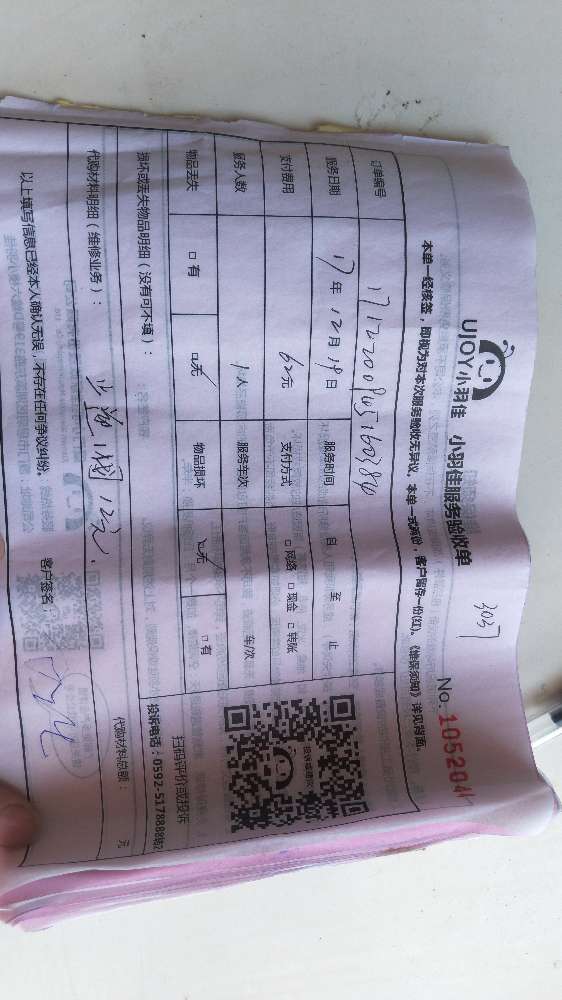 3037
UJOY小羽佳 小羽佳服务验收单
No.105204
本单一经核签，即视为对本次服务验收无异议，本单一式两份，客户留存一份(红)。《维保须知》详见背面。
订单编号
服务日期 17年12月19日 服务时间 自 至 止
支付费用 62元 支付方式 □网络 □现金 □转账
服务人数 1人 服务车次 车/次
物品丢失 □有 □无 物品损坏 □无 □有
扫码评价或投诉
投诉电话：0592-5178888转2
损坏或丢失物品明细（没有可不填）：
代购材料明细（维修业务）： 代购材料总额： 元
12元.
以上填写信息已经本人确认无误，不存在任何争议纠纷。 客户签名：